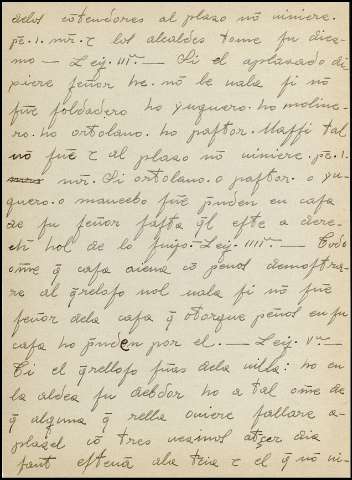 delos cōtendores al plaso nō viniere.
pē. 1. mr̄. τ los alcaldes tome su dies-
mo — Ley. IIIª. — Si el aplasado di
siere señor he. nō be uala si nō
fūe soldadero ho yuguero. ho moline-
ro. ho ortolano. ho pastor. Massi tal
nō fūe τ al plaso nō viniere. pē. 1.
mr̄. Si ortolano. o pastor. o yu-
guero. o mancebo fūe p̄nden en casa
de su señor fasta q̄l este a dere-
ch hol de lo suyo. — Ley. IIIIª. — Todo
ome q̄ casa aiena cō peños demostra-
re al q̄relloso nol uala si nō fūe
señor dela casa q̄ otorgue peños en su
casa ho p̄nden por el. — Ley. Vª. —
Si el q̄relloso fūas dela villa: ho en
la aldea su debdor ho a tal ome de
q̄ alguna q̄ rella ouiere fallare a-
plasel cō tres uesinos atçer dia
. . . . ala τ el q̄ nō ui-